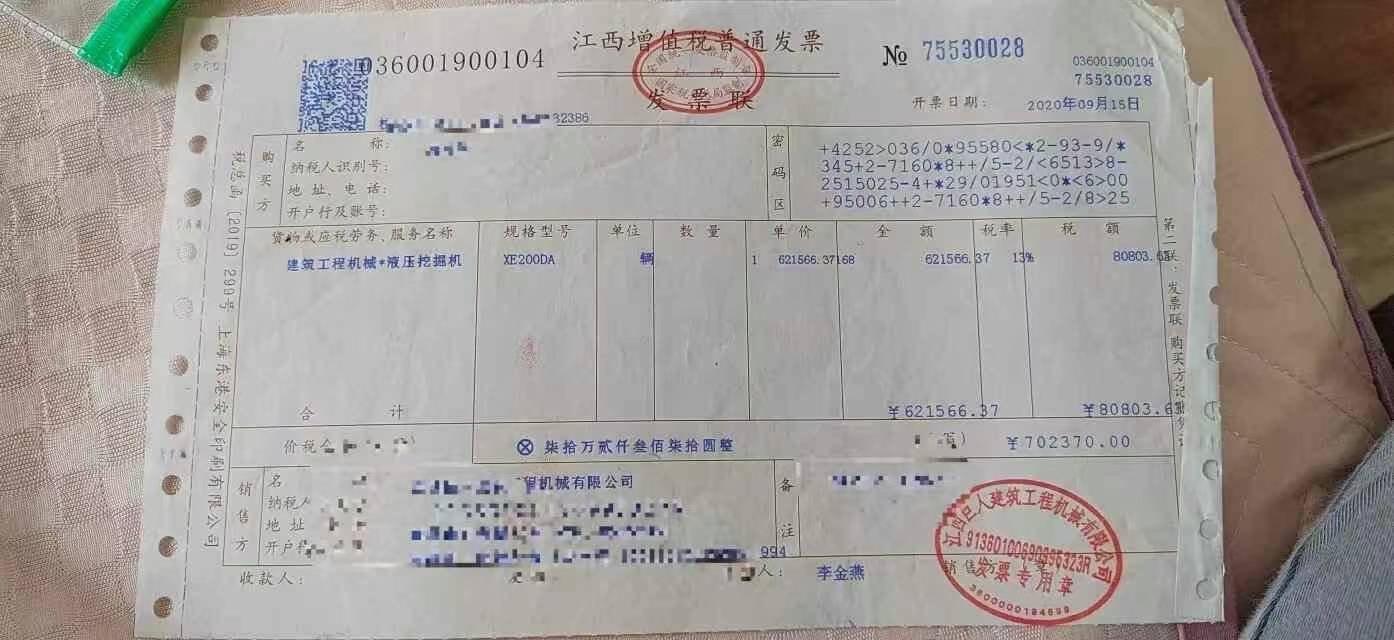 江西增值税普通发票
发票联
036001900104
№ 75530028
036001900104
75530028
开票日期: 2020年09月15日
32386
购买方
名 称:
纳税人识别号:
地址、电话:
开户行及账号:
密码区
+4252>036/0*95580<*2-93-9/*
345+2-7160*8++/5-2/<6513>8-
2515025-4+*29/01951<0*<6>00
+95006++2-7160*8++/5-2/8>25
货物或应税劳务、服务名称 规格型号 单位 数量 单价 金额 税率 税额
建筑工程机械*液压挖掘机 XE200DA 辆 1 621566.37168 621566.37 13% 80803.63
合 计 ¥621566.37 ¥80803.63
价税 ⊗柒拾万贰仟叁佰柒拾圆整 ¥702370.00
销售方
名
机械有限公司
纳税人
地址
开户行
994
备注
收款人: 人: 李金燕 销售方
江西巨人建筑工程机械有限公司
发票专用章
税总函〔2019〕299号 上海东港安全印刷有限公司
第二联:发票联 购买方记账凭证